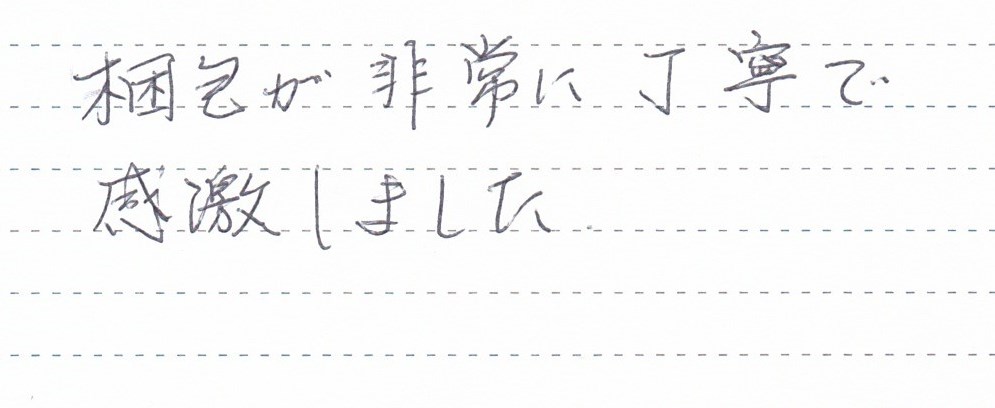 梱包が非常に丁寧で
感激しました.